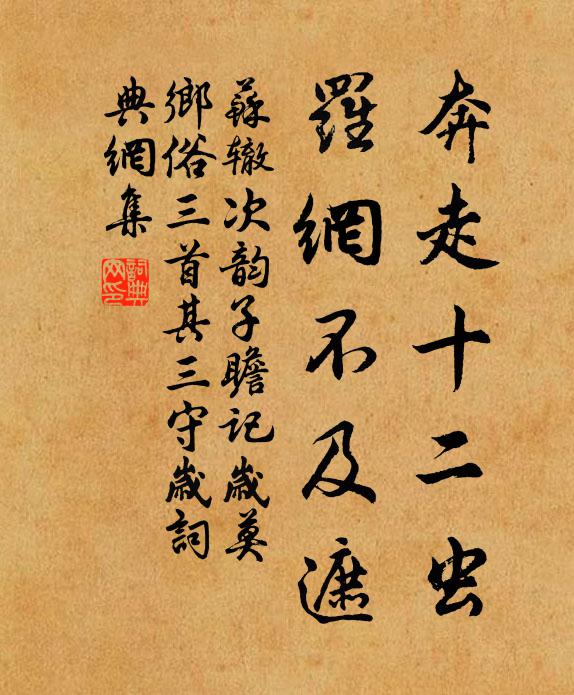 奔走十二虫
羅網不及遮
蘇辙次韵子瞻記歲莫
鄉俗三首其三守歲詞
典網集
詞典网印